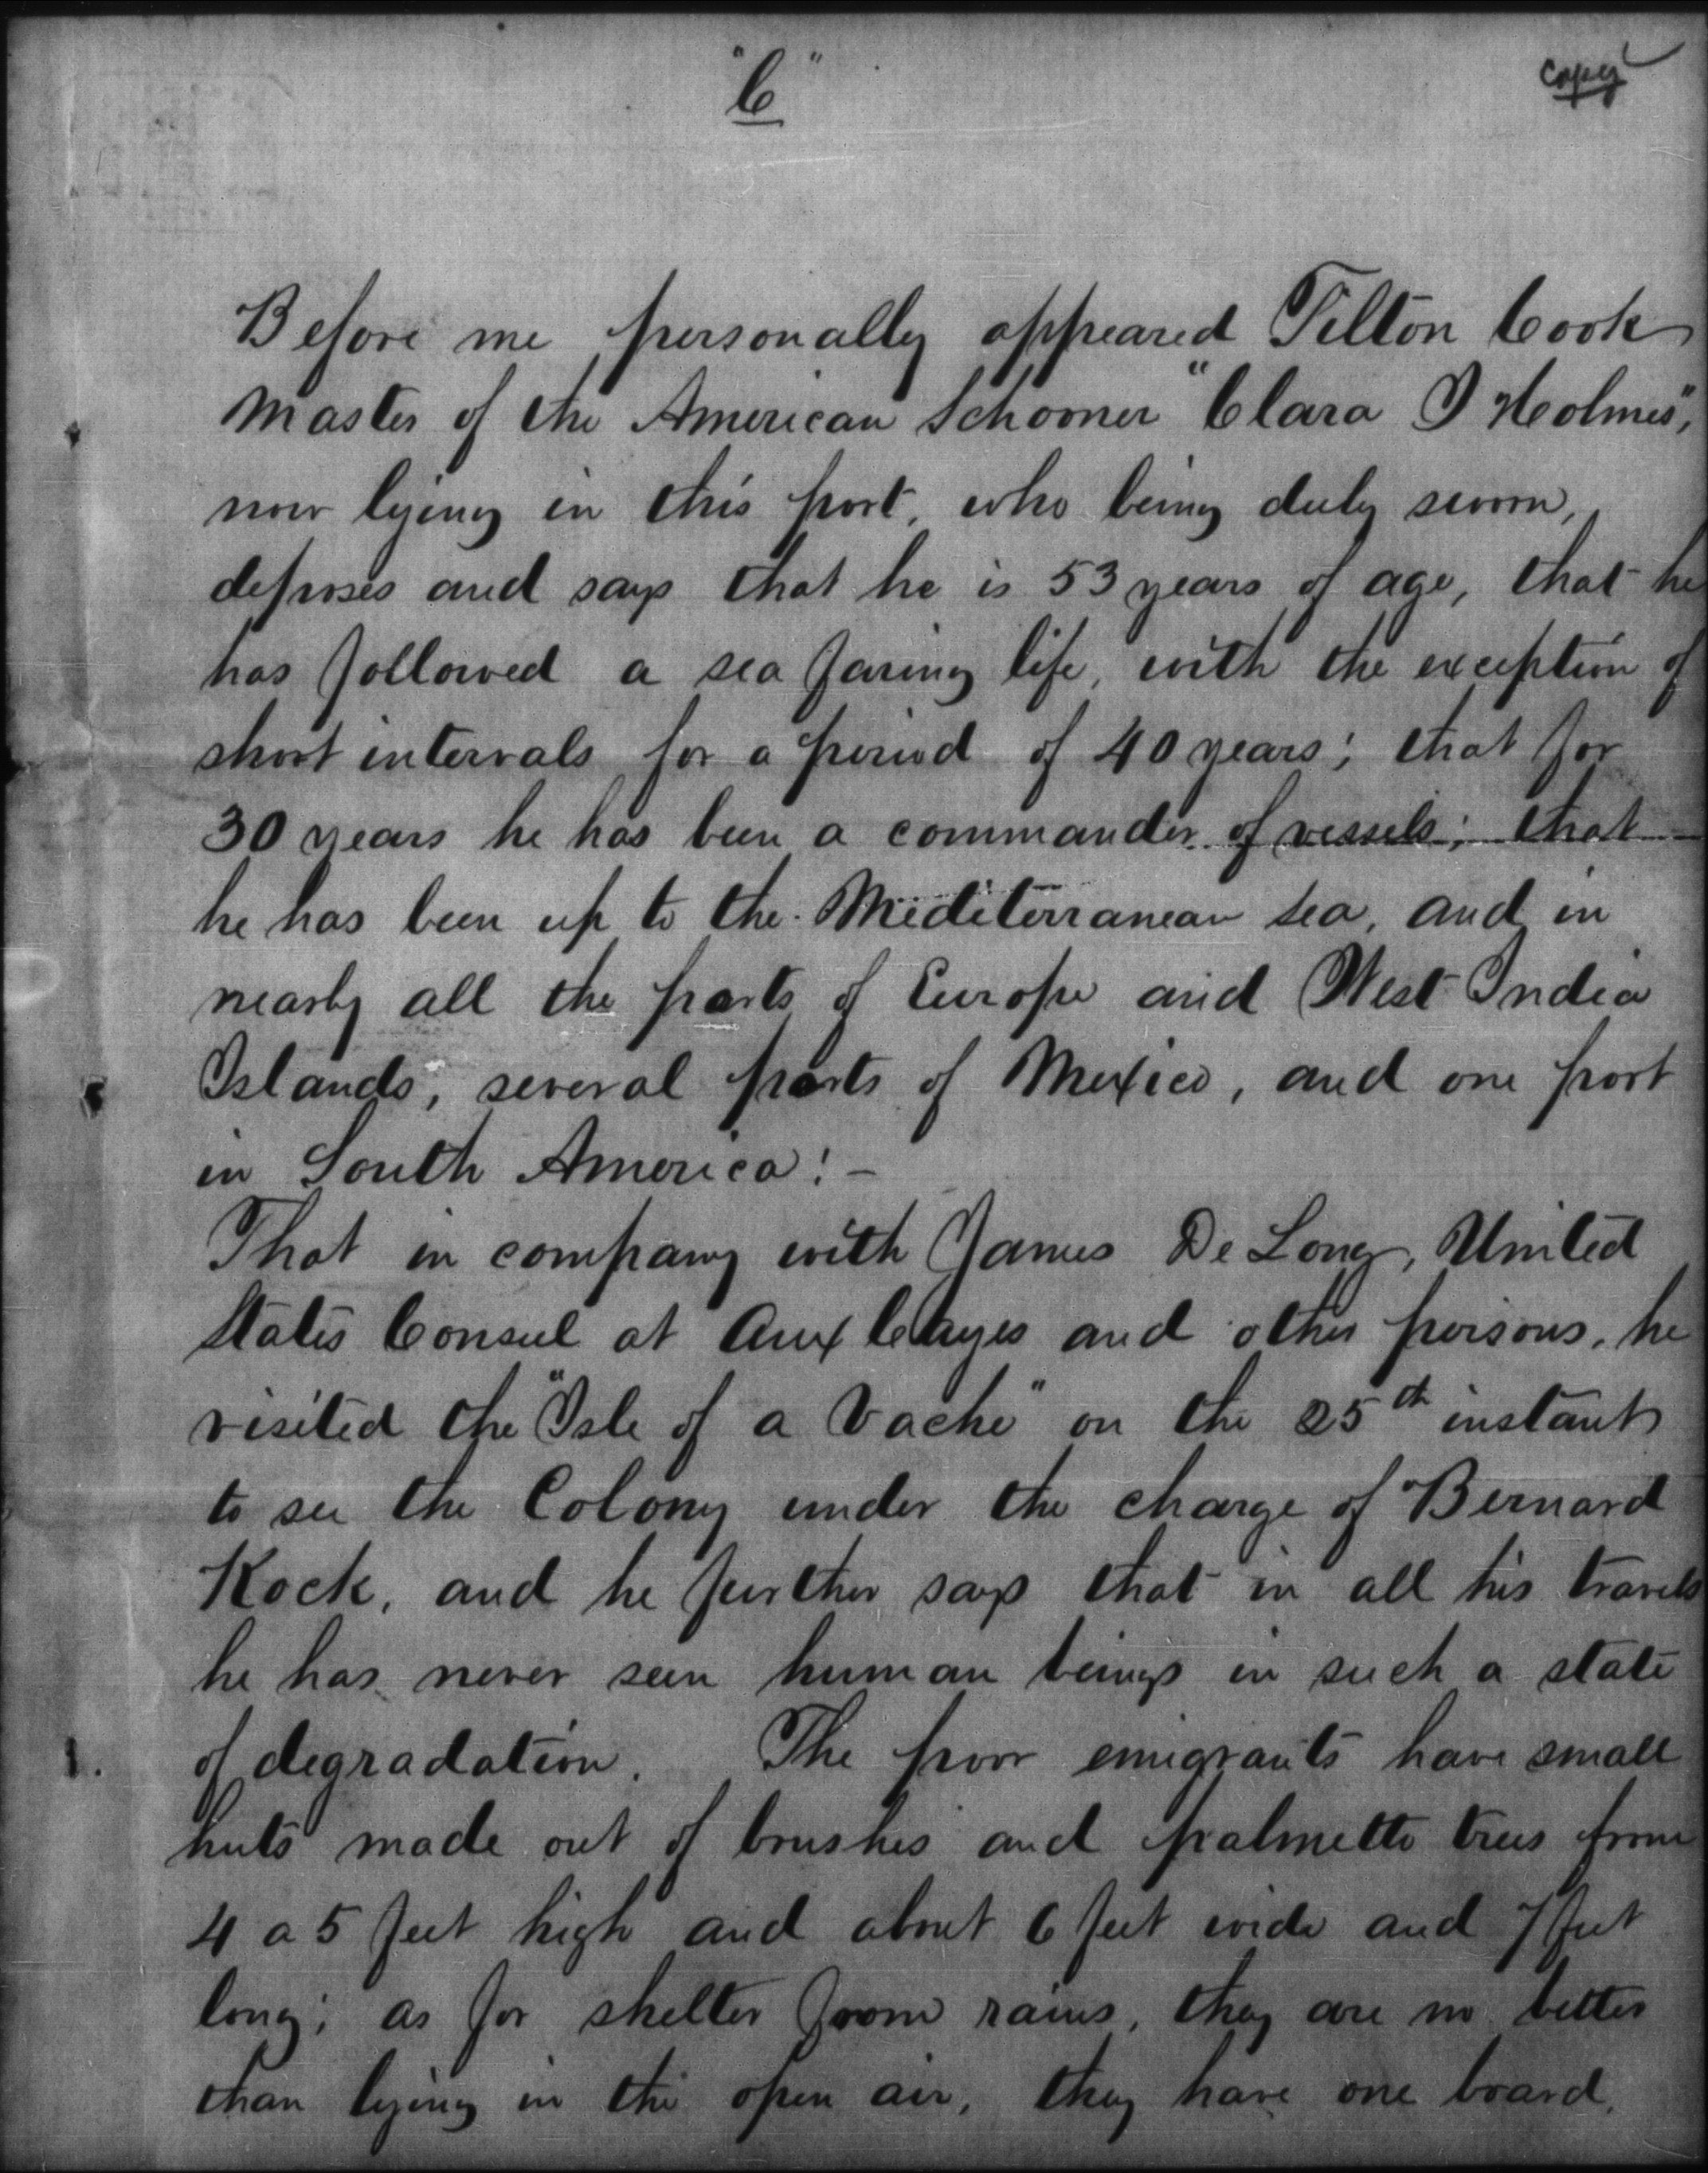 "C"
Copy
Before me personally appeared Tilton Cook
Master of the American Schooner "Clara I Holmes",
now lying in this port, who being duly sworn,
deposes and says that he is 53 years of age, that he
has followed a sea faring life, with the exception of
short intervals for a period of 40 years; that for
30 years he has been a commander of vessels; that
he has been up to the Mediterranean Sea, and in
nearly all the ports of Europe and West India
Islands, several ports of Mexico, and one port
in South America:-
That in company with James De Long, United
States Consul at Aux Cayes and other persons, he
visited the "Isle of a Vache" on the 25th instant
to see the Colony under the charge of Bernard
Kock, and he further says that in all his travels
he has never seen human beings in such a state
of degradation. The poor emigrants have small
huts made out of brushes and palmetto trees from
4 a 5 feet high and about 6 feet wide and 7 feet
long; as for shelter from rains, they are no better
than lying in the open air, they have one board,